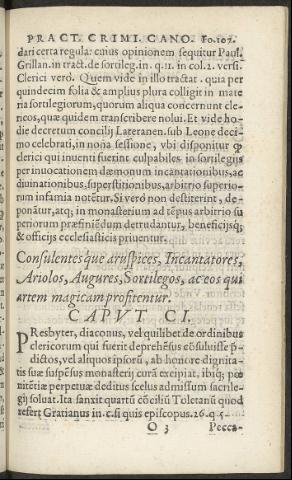 PRACT. CRIMI. CANO. Fo.107.
dari certa regula: cuius opinionem sequitur Paul.
Grillan. in tract. de sortileg. in. q.11. in col.2. versi.
Clerici verò. Quem vide in illo tractat. quia per
quindecim folia & amplius plura colligit in mate
ria sortilegiorum, quorum aliqua concernunt cle-
ricos, quæ quidem transcribere nolui. Et vide ho-
die decretum concilij Lateranen. sub Leone deci-
mo celebrati, in nona sessione, vbi disponitur ꝙ
clerici qui inuenti fuerint culpabiles in sortilegijs
per inuocationem dæmonum incantationibus, ac
diuinationibus, superstitionibus, arbitrio superio-
rum infamia notẽtur. Si verò non destiterint, de-
ponãtur, atq; in monasterium ad tẽpus arbitrio su
periorum præfiniẽdum detrudantur, beneficijsq;
& officijs ecclesiasticis priuentur.
Consulentes que aruspices, Incantatores,
Ariolos, Augures, Sortilegos, ac eos qui
artem magicam profitentur.
CAPVT CI.
PResbyter, diaconus, vel quilibet de ordinibus
clericorum qui fuerit deprehẽsus cõsuluisse p̃
dictos, vel aliquos ipsorũ, ab honore dignita-
tis suæ suspẽsus monasterij curã excipiat, ibiq; pœ
nitẽtiæ perpetuæ deditus scelus admissum sacrile-
gij soluat. Ita sanxit quartũ cõciliũ Toletanũ quod
refert Gratianus in. c. si quis episcopus. 26. q. 5.
O 3 Pecca-